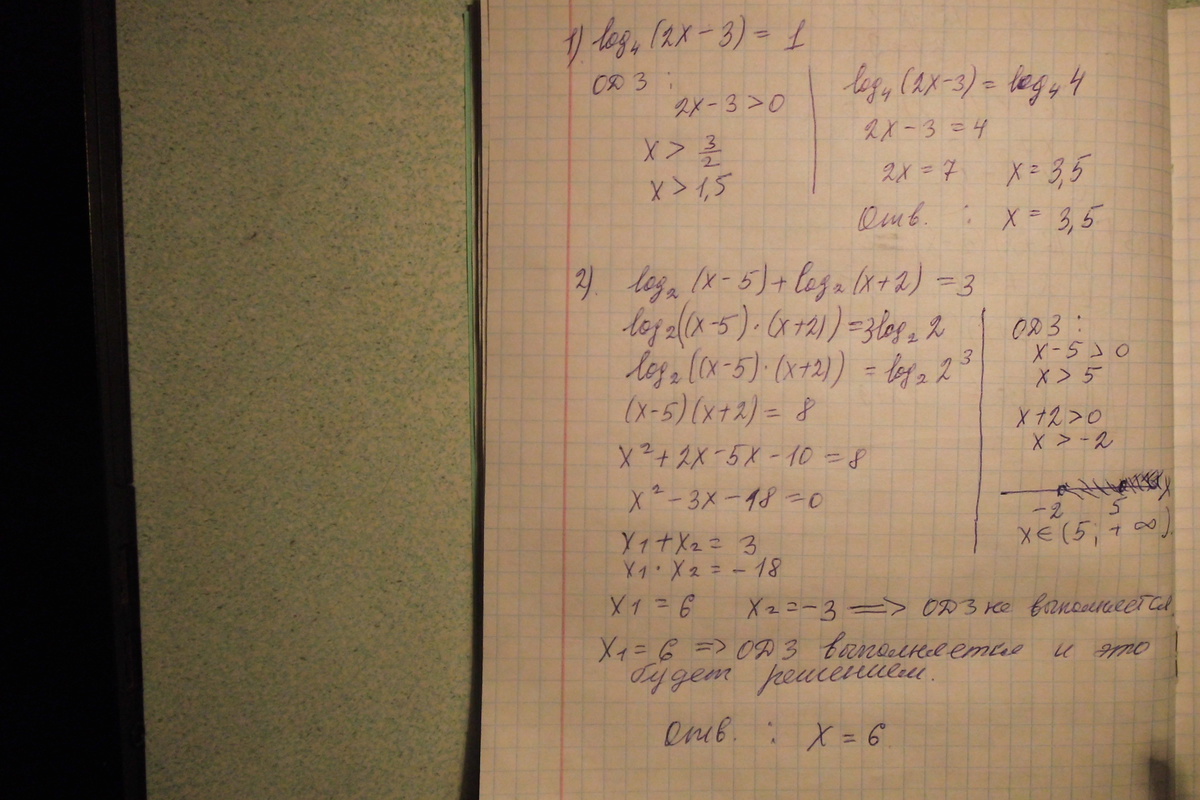 1) log₄(2x-3) = 1
ОДЗ :
2x-3>0
x > 3/2
x > 1,5
log₄(2x-3) = log₄4
2x-3 = 4
2x = 7 x = 3,5
Отв. : x = 3,5
2). log₂(x-5)+log₂(x+2) = 3
log₂((x-5)·(x+2)) = 3log₂2
log₂((x-5)·(x+2)) = log₂2³
(x-5)(x+2) = 8
x²+2x-5x-10 = 8
x²-3x-18 = 0
x₁+x₂ = 3
x₁·x₂ = -18
ОДЗ :
x-5>0
x>5
x+2>0
x>-2
x
-2 5
x∈(5; +∞)
x₁ = 6 x₂ = -3 => ОДЗ не выполняется
x₁ = 6 => ОДЗ выполняется и это
будет решением.
Отв. : x = 6